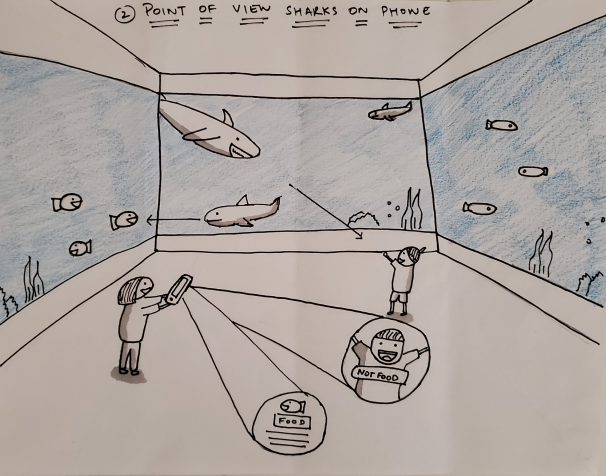 ② POINT OF VIEW SHARKS ON PHONE
NOT FOOD
FOOD